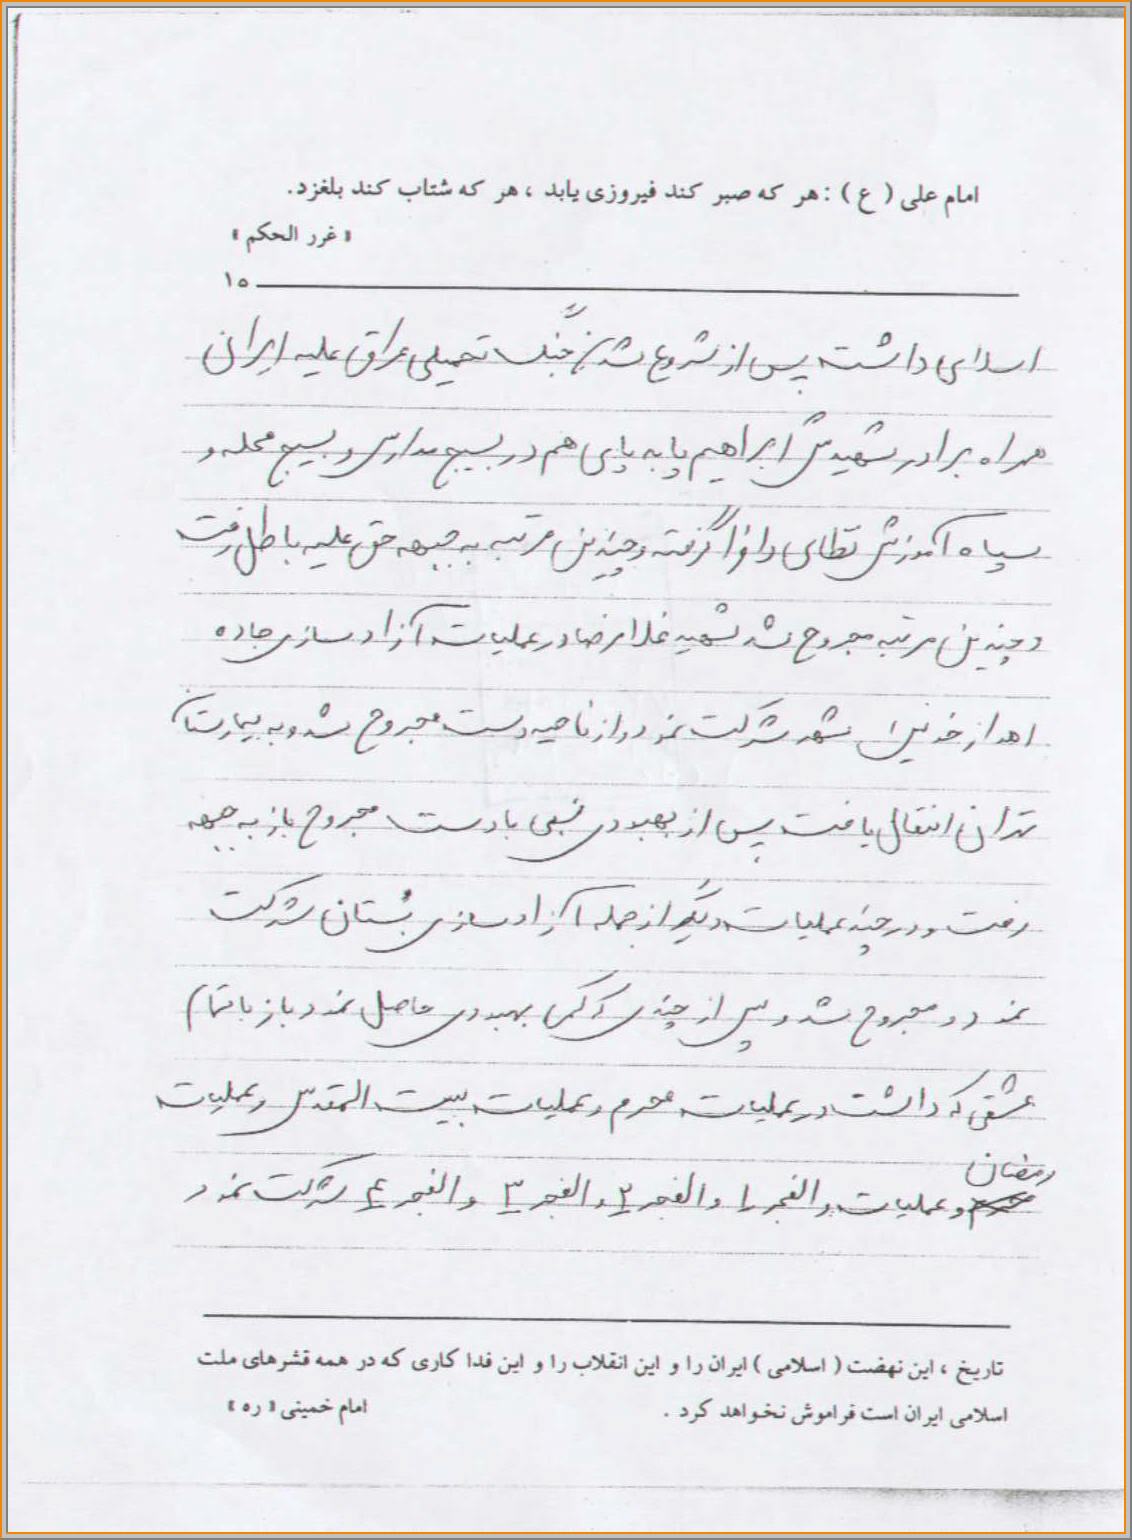 امام علی ( ع ) : هر که صبر کند فیروزی یابد ، هر که شتاب کند بلغزد.
« غرر الحکم »
۱۵
اسلامی داشت پس از شروع شدن جنگ تحمیلی عراق علیه ایران
همراه برادر شهیدش ابراهیم پا به پای هم در بسیج مدارس و بسیج محله و
سپاه آموزش نظامی را فرا گرفته و چندین مرتبه به جبهه حق علیه باطل رفت
و چندین مرتبه مجروح شد شهید غلامرضا در عملیات آزاد سازی جاده
اهواز خونین شهر شرکت نمود و از ناحیه دست مجروح شد و به بیمارستان
تهران انتقال یافت پس از بهبودی نسبی با دست مجروح باز به جبهه
رفت و در چند عملیات دیگر از جمله آزاد سازی بُستان شرکت
نمود و مجروح شد و پس از چندی که کمی بهبودی حاصل نمود باز با تمام
عشقی که داشت در عملیات محرم و عملیات بیت المقدس و عملیات
رمضان
و عملیات والفجر ۱ والفجر ۲ والفجر ۳ والفجر ۴ شرکت نمود
تاریخ ، این نهضت ( اسلامی ) ایران را و این انقلاب را و این فدا کاری که در همه قشرهای ملت
اسلامی ایران است فراموش نخواهد کرد . امام خمینی « ره »